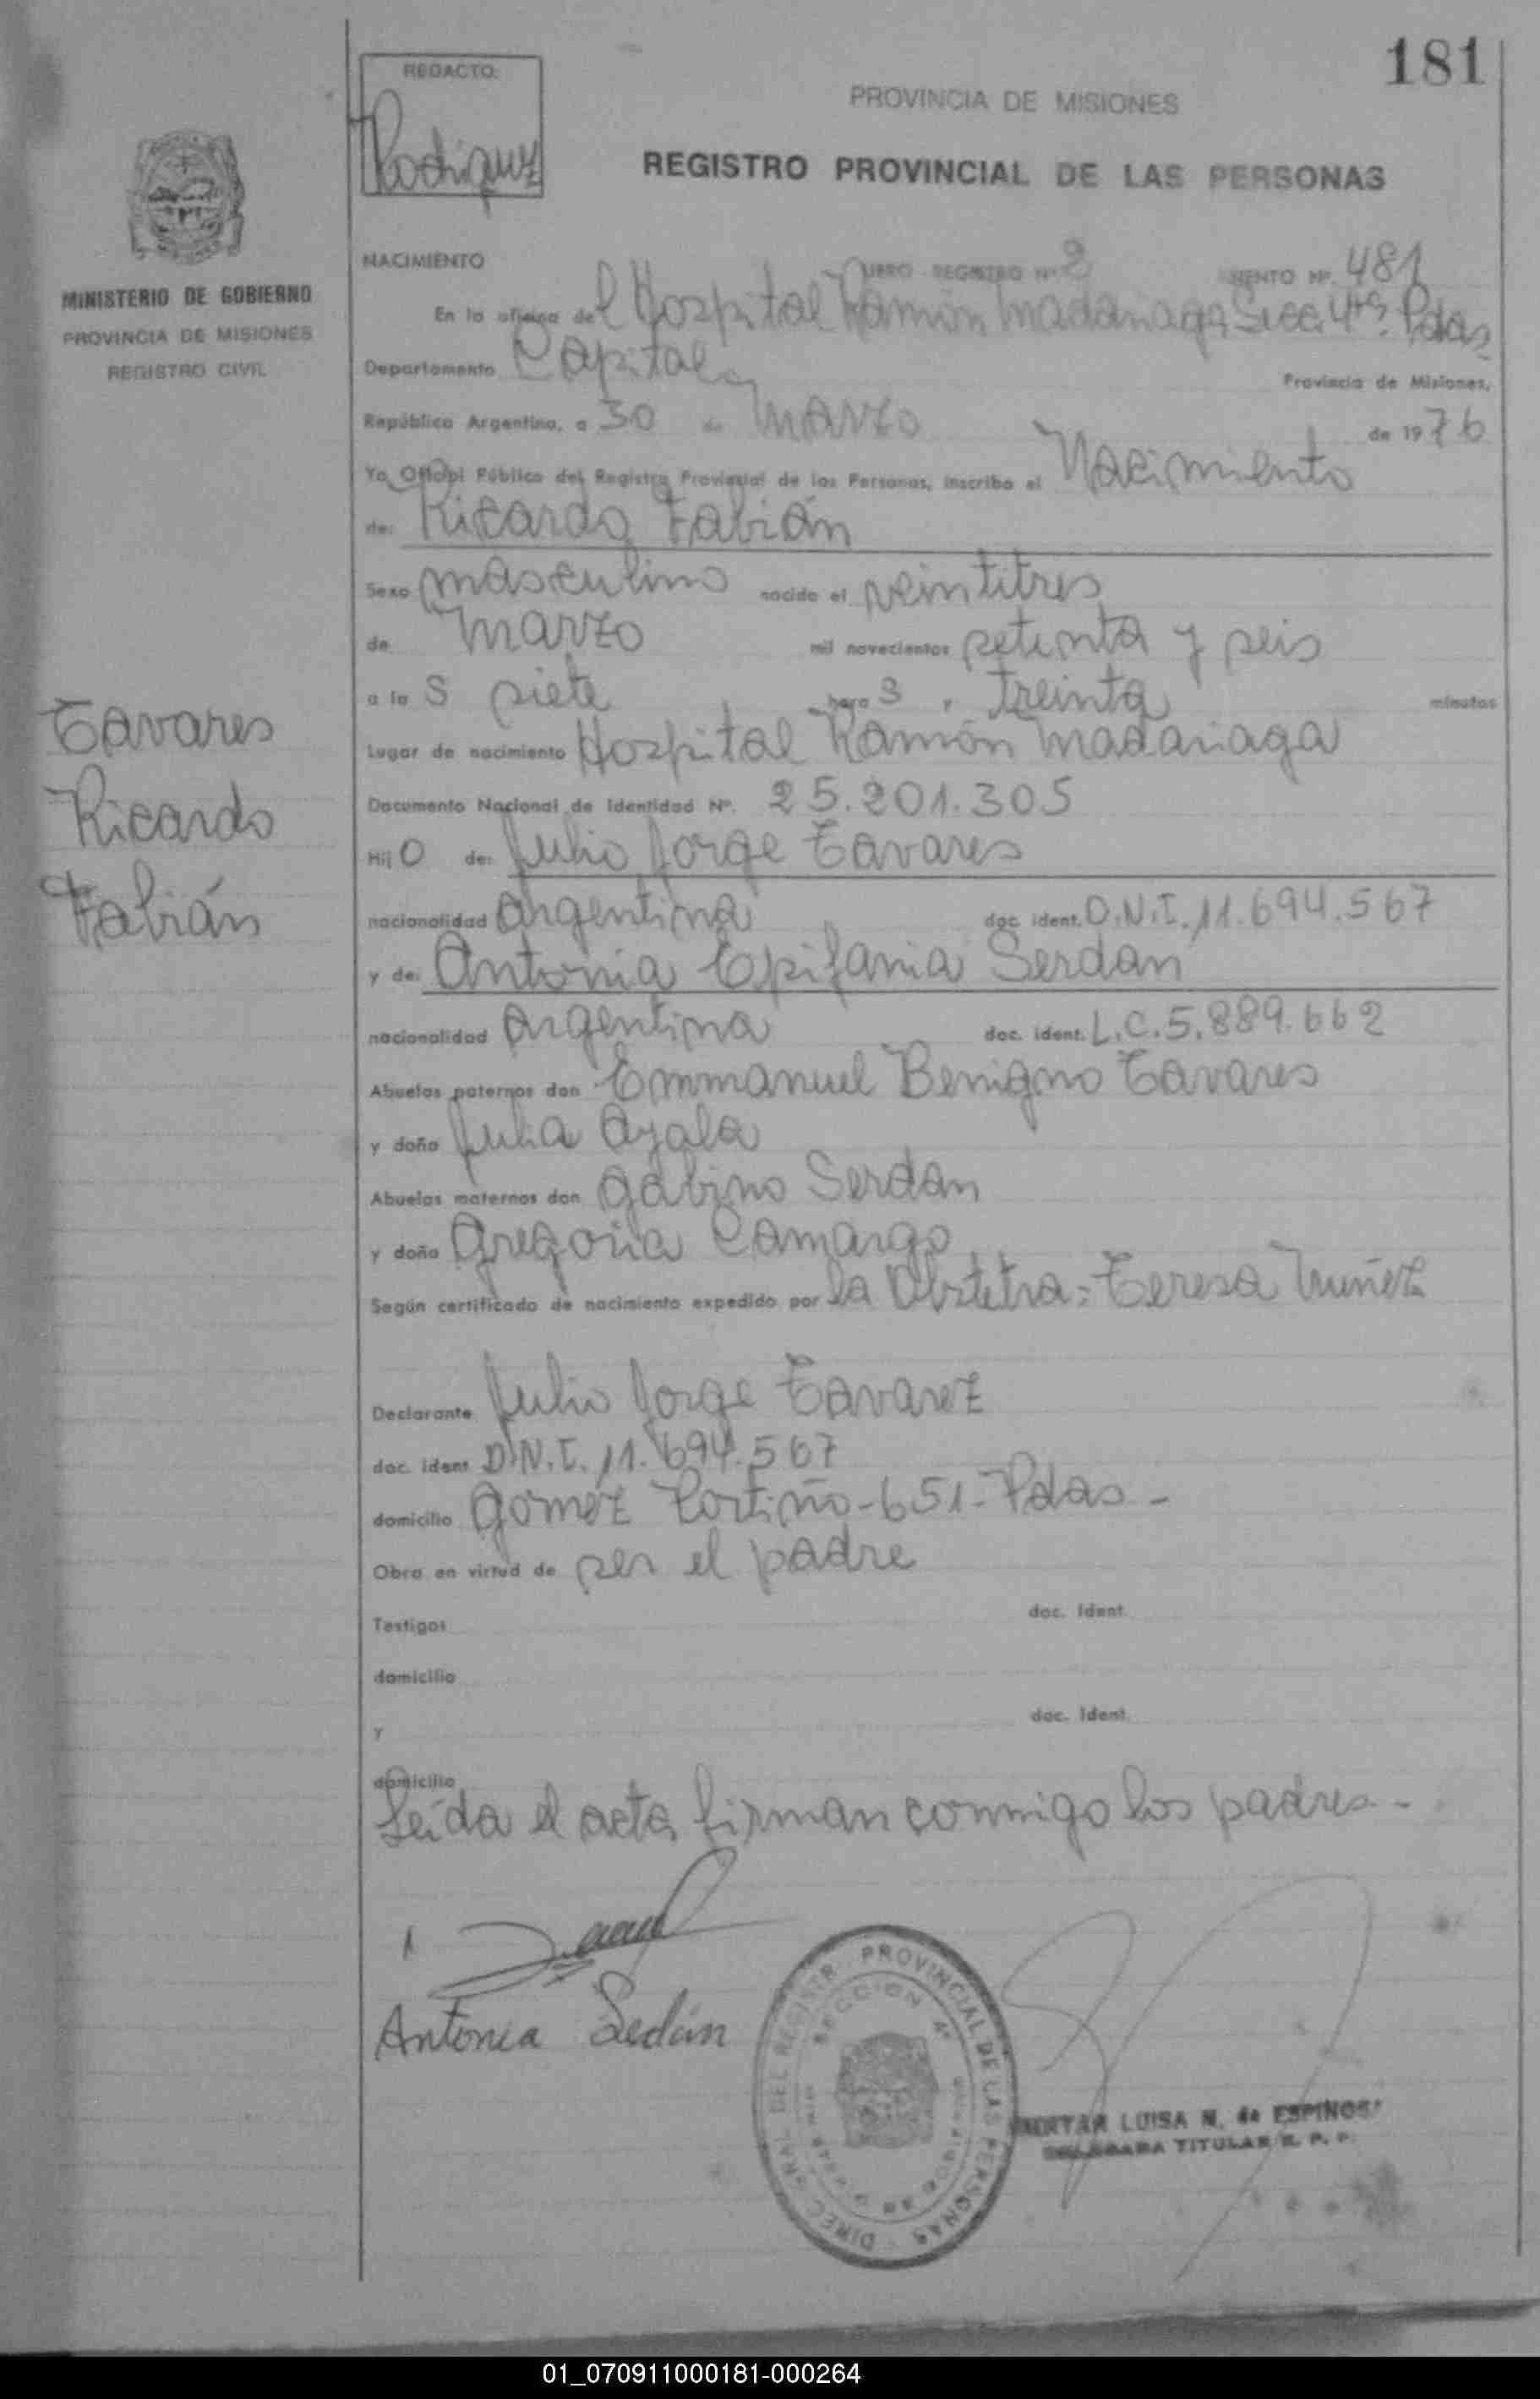 181
REDACTO:
Rodriguez
PROVINCIA DE MISIONES
REGISTRO PROVINCIAL DE LAS PERSONAS
MINISTERIO DE GOBIERNO
PROVINCIA DE MISIONES
REGISTRO CIVIL
NACIMIENTO LIBRO REGISTRO Nº 2 Nº 481
En la oficina del Hospital Ramón Madariaga Secc. 4ta. Pdas.
Departamento Capital Provincia de Misiones,
República Argentina, a 30 de Marzo de 1976
Yo, Oficial Público del Registro Provincial de las Personas, inscribo el Nacimiento
de: Ricardo Fabián
Sexo masculino nacido el veintitres
de Marzo mil novecientos setenta y seis
a la S siete hora S, treinta minutos
Lugar de nacimiento Hospital Ramón Madariaga
Documento Nacional de Identidad Nº. 25.201.305
Hij O de: Julio Jorge Tavares
nacionalidad Argentina doc. ident. D.N.I. 11.694.567
y de: Antonia Epifania Serdan
nacionalidad Argentina doc. ident. L.C. 5.889.662
Abuelos paternos don Emmanuel Benigno Tavares
y doña Julia Ayala
Abuelos maternos don Gabino Serdan
y doña Gregoria Camargo
Según certificado de nacimiento expedido por la Obstetra: Teresa Nuñez
Declarante Julio Jorge Tavarez
doc. ident D.N.I. 11.694.567
domicilio Gomez Portiño-651-Pdas-
Obra en virtud de ser el padre
Testigos doc. Ident.
domicilio
y doc. Ident.
domicilio
Leída el acta, firman conmigo los padres-
Tavares
Ricardo
Fabián
Antonia Sedán
DIREC. GRAL. DEL REGISTR. PROVINCIAL DE LAS PERSONAS
SECCION 4ª
LUISA N. de ESPINOSA
TITULAR R. P. P.
01_070911000181-000264